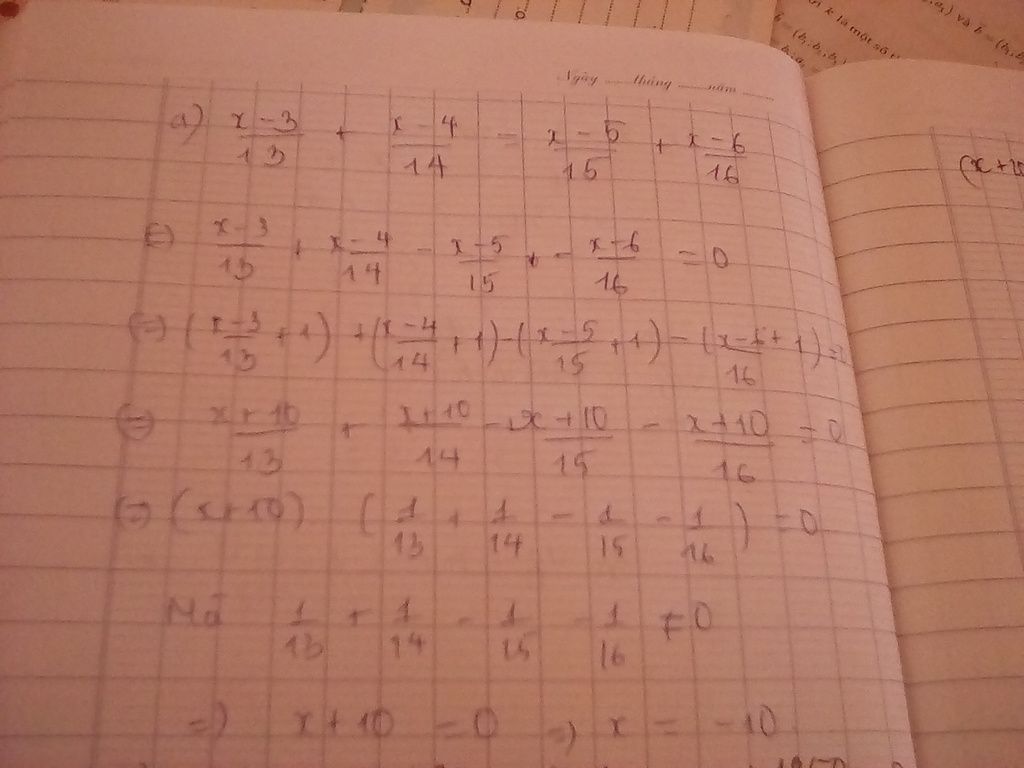 Ngày ..... tháng ..... năm .....
a) \frac{x-3}{13} + \frac{x-4}{14} = \frac{x-5}{15} + \frac{x-6}{16}
(=) \frac{x-3}{13} + \frac{x-4}{14} - \frac{x-5}{15} + - \frac{x-6}{16} = 0
(=) (\frac{x-3}{13} + 1) + (\frac{x-4}{14} + 1) - (\frac{x-5}{15} + 1) - (\frac{x-6}{16} + 1) =
(=) \frac{x+10}{13} + \frac{x+10}{14} - \frac{x+10}{15} - \frac{x+10}{16} = 0
(=) (x+10) (\frac{1}{13} + \frac{1}{14} - \frac{1}{15} - \frac{1}{16}) = 0
Mà \frac{1}{13} + \frac{1}{14} - \frac{1}{15} - \frac{1}{16} ≠ 0
=) x + 10 = 0 =) x = -10
(x+10